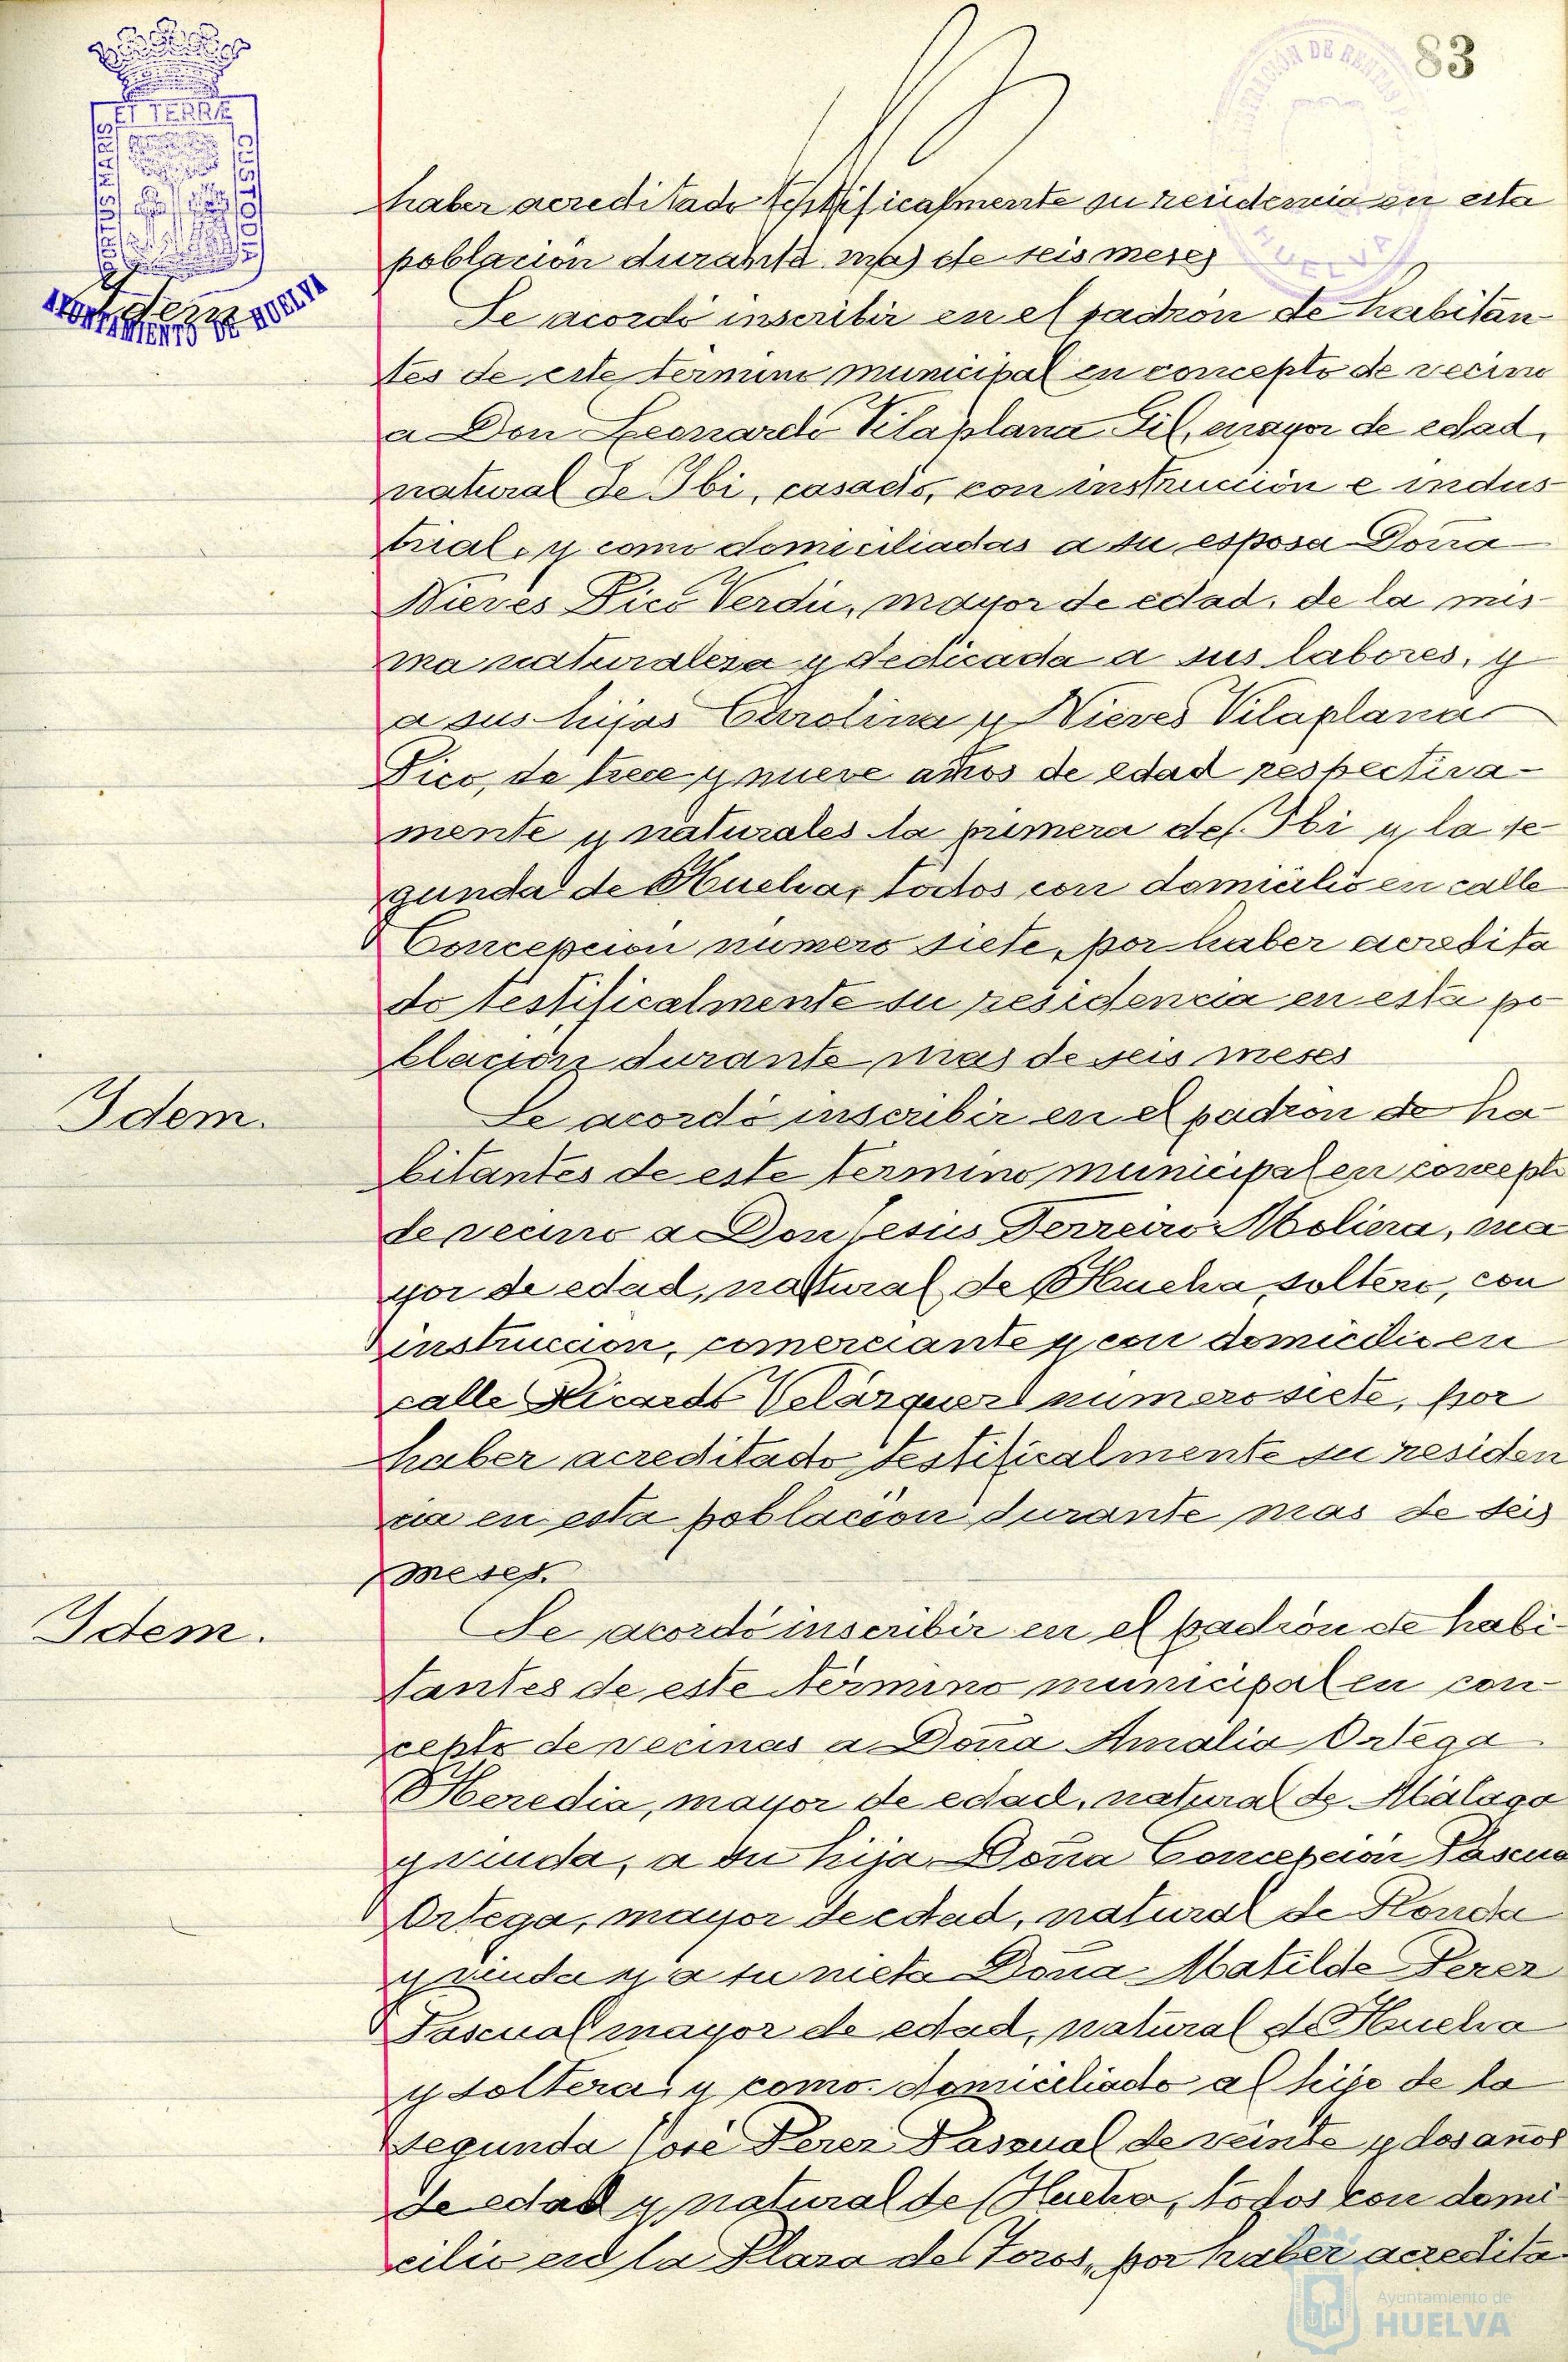 83
PORTUS MARIS ET TERRÆ CUSTODIA
AYUNTAMIENTO DE HUELVA
HUELVA
haber acreditado testificalmente su residencia en esta
poblacion durante mas de seis meses
Idem
Se acordó inscribir en el padrón de habitan-
tes de este termino municipal en concepto de vecino
a Don Leonardo Vilaplana Gil, mayor de edad,
natural de Ibi, casado, con instrucción e indus-
trial, y como domiciliadas a su esposa Doña
Nieves Pico Verdú, mayor de edad, de la mis-
ma naturaleza y dedicada a sus labores, y
a sus hijas Carolina y Nieves Vilaplana
Pico, de trece y nueve años de edad respectiva-
mente y naturales la primera de Ibi y la se
gunda de Huelva, todos con domicilio en calle
Concepcion numero siete, por haber acredita
do testificalmente su residencia en esta po-
blacion durante mas de seis meses
Idem.
Se acordó inscribir en el padrón de ha-
bitantes de este termino municipal en concepto
de vecino a Don Jesus Ferreiro Moliera, ma
yor de edad, natural de Huelva soltero, con
instruccion, comerciante y con domicilio en
calle Ricardo Velázquez numero siete, por
haber acreditado testificalmente su residen
cia en esta poblacion durante mas de seis
meses.
Idem.
Se acordó inscribir en el padrón de habi-
tantes de este término municipal en con-
cepto de vecinas a Doña Amalia Ortega
Heredia, mayor de edad, natural de Málaga
y viuda, a su hija Doña Concepcion Pascua
Ortega, mayor de edad, natural de Ronda
y viuda y a su nieta Doña Matilde Perez
Pascual mayor de edad, natural de Huelva
y soltera, y como domiciliado al hijo de la
segunda José Perez Pascual de veinte y dos años
de edad y natural de Huelva, todos con domi-
cilio en la Plaza de Toros, por haber acredita
Ayuntamiento de
HUELVA